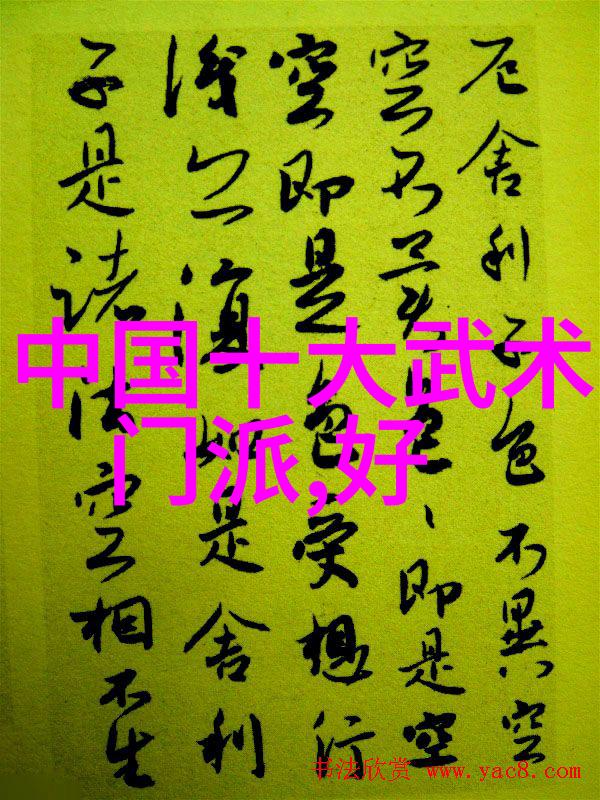 厄舍利子色不異空
空不異色、即是空
空即是色受想行
識亦復如是舍利
子是諸法空相不生
中国十大武术
门派,好
书法欣赏 www.yac8.com